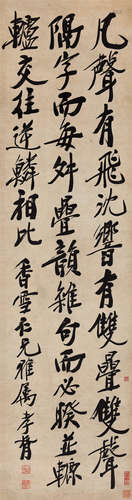 凡聲有飛沈響有雙疊雙聲
隔字而每舛疊韻雜句而必睽並轆
轤交往逆鱗相比 香雪仁兄雅属 孝胥